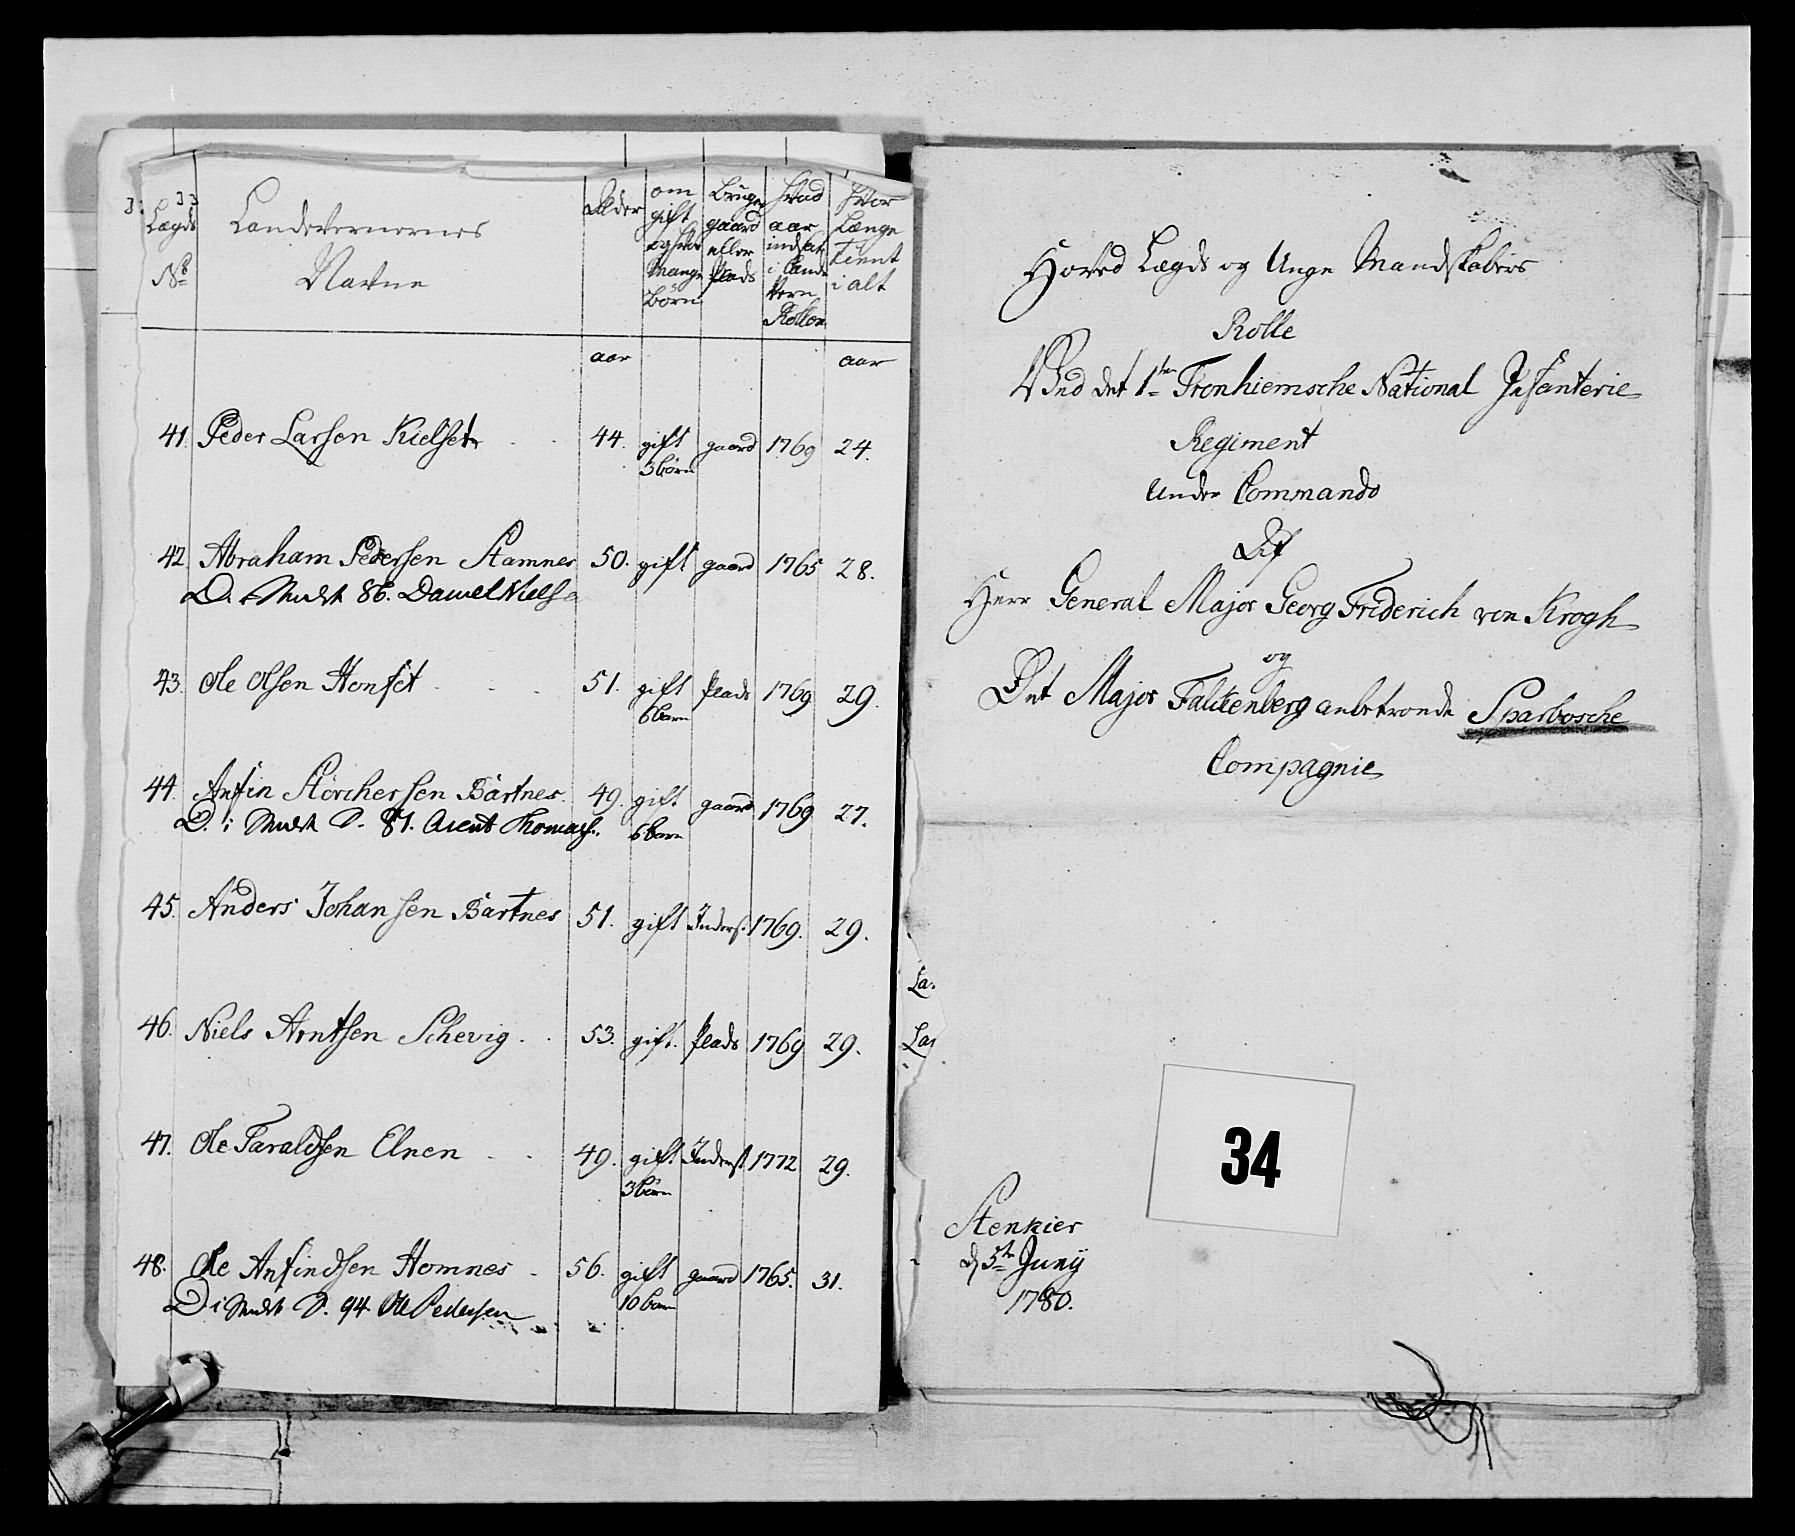 Lægds
No
Landeværnernes
Navne
Alder
om
gift
og hvor
mange
Börn
Bruger
gaard
eller
Plads
Hvad
aar
indsat
i Land
Vern
Rollen
Hvor
Længe
tient
i alt
aar
aar
41. Peder Larsen Kielset 44. gift gaard 1769 24.
3 börn
42. Abraham Pedersen Stamnes 50. gift gaard 1765 28.
D. i 86. Daniel Niels
43. Ole Olsen Honset 51. gift Plads 1769 29.
6 barn
44. Anfin Storchersen Bartnes. 49. gift gaard 1769 27.
D. i 87. Arent Thomass.
6 barn
45. Anders Johansen Bartnes 51. gift Inderst. 1769. 29.
46. Niels Arntsen Schevig 53. gift. Plads 1769 29.
47. Ole Taraldsen Elnen 49. gift Inderst 1772 29.
3 börn
48. Ole Anfindsen Homnes 56. gift gaard 1765. 31.
D i 94 Ole Pedersen
10 barn
La.
La
Hoved Lægds og Unge Mandskabers
Rolle
Ved det 1ste Tronhiemsche National Infanterie
Regiment
Under Commando
Af
Herr General Major Georg Friderich von Krogh
og
Det Major Falkenberg anbetroede Sparbosche
Compagnie
34
Stenkier
d 5te Juny
1780.